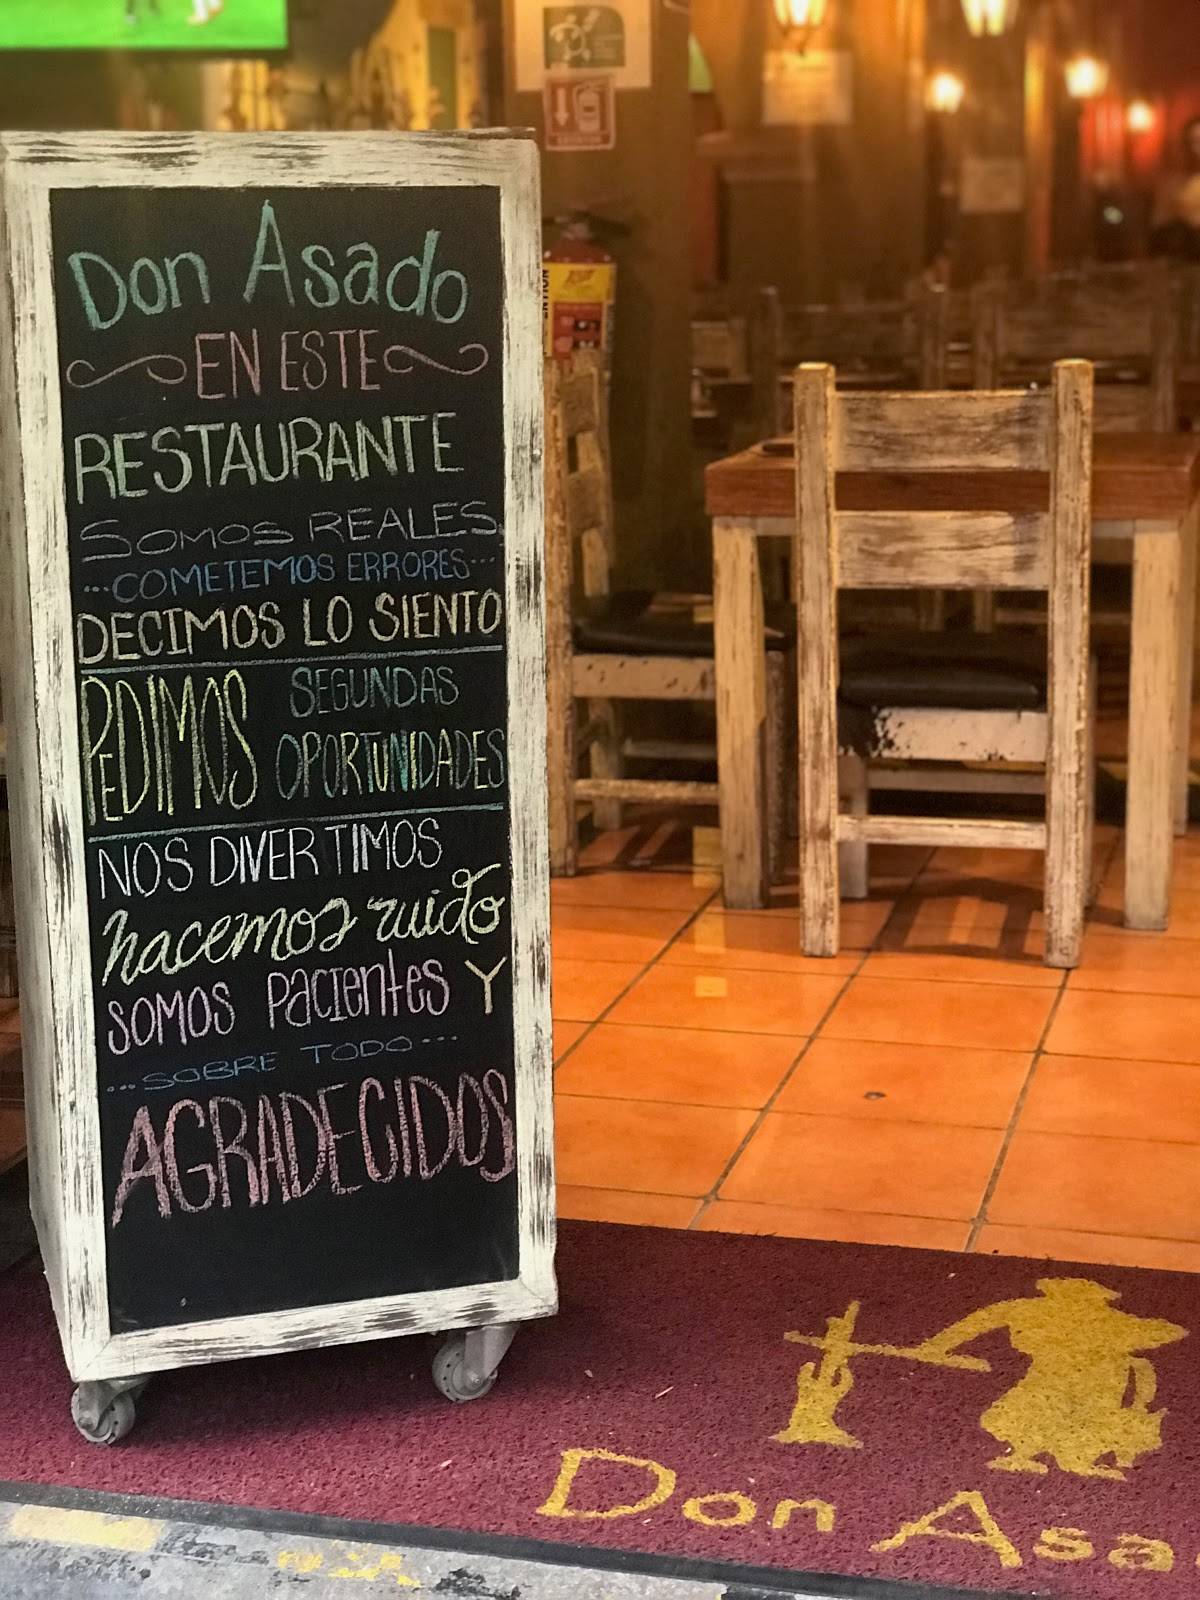 Don Asado
EN ESTE
RESTAURANTE
SOMOS REALES
...COMETEMOS ERRORES...
DECIMOS LO SIENTO
PEDIMOS SEGUNDAS
OPORTUNIDADES
NOS DIVERTIMOS
hacemos ruido
SOMOS PACIENTES Y
...SOBRE TODO...
AGRADECIDOS
Don Asa